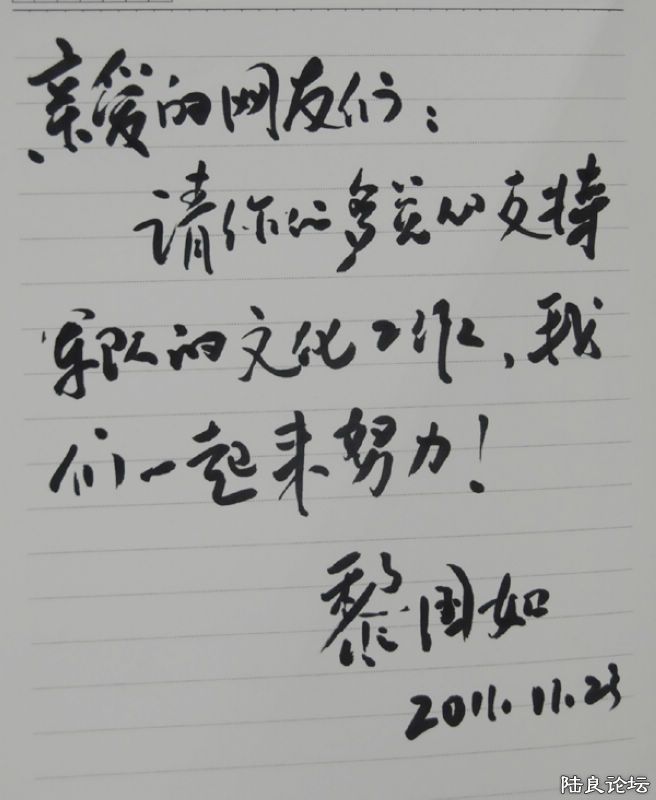 亲爱的网友们：
请你们多多支持
军队的文化工作，我
们一起来努力！
黎国如
2011.11.23
陆良论坛